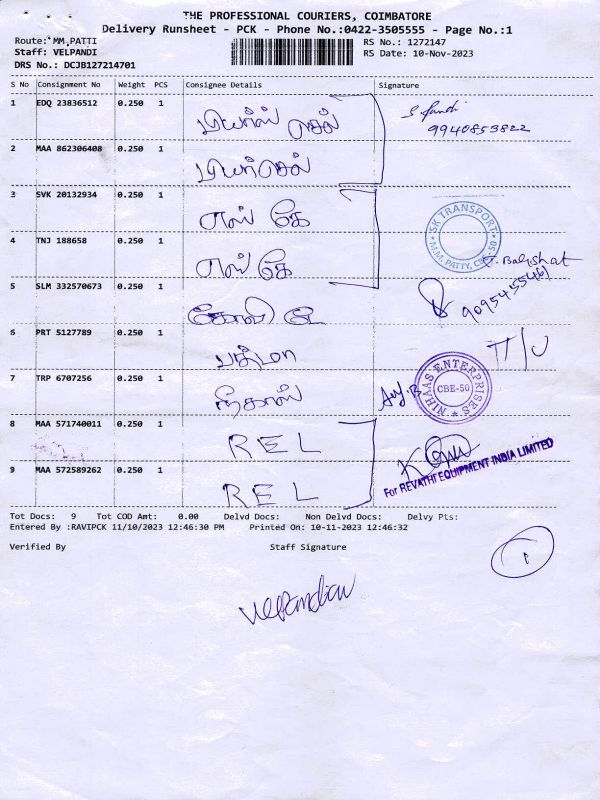 THE PROFESSIONAL COURIERS, COIMBATORE
Delivery Runsheet - PCK - Phone No.:0422-3505555 - Page No.:1
Route: MM.PATTI RS No.: 1272147
Staff: VELPANDI RS Date: 10-Nov-2023
DRS No.: DCJB127214701
S No Consignment No Weight PCS Consignee Details Signature
1 EDQ 23836512 0.250 1
9940853822
2 MAA 862306408 0.250 1
3 SVK 20132934 0.250 1 எஸ் கே
SK TRANSPORT
M.M. PATTY, CBE-50
4 TNJ 188658 0.250 1 எஸ் கே
5 SLM 332570673 0.250 1
6 PRT 5127789 0.250 1 பத்மா
7 TRP 6707256 0.250 1 நிகாஸ்
NIHAAS ENTERPRISES
CBE-50
8 MAA 571740011 0.250 1 REL
For REVATHI EQUIPMENT INDIA LIMITED
9 MAA 572589262 0.250 1 REL
Tot Docs: 9 Tot COD Amt: 0.00 Delvd Docs: Non Delvd Docs: Delvy Pts:
Entered By :RAVIPCK 11/10/2023 12:46:30 PM Printed On: 10-11-2023 12:46:32
Verified By Staff Signature
1
Velpandian